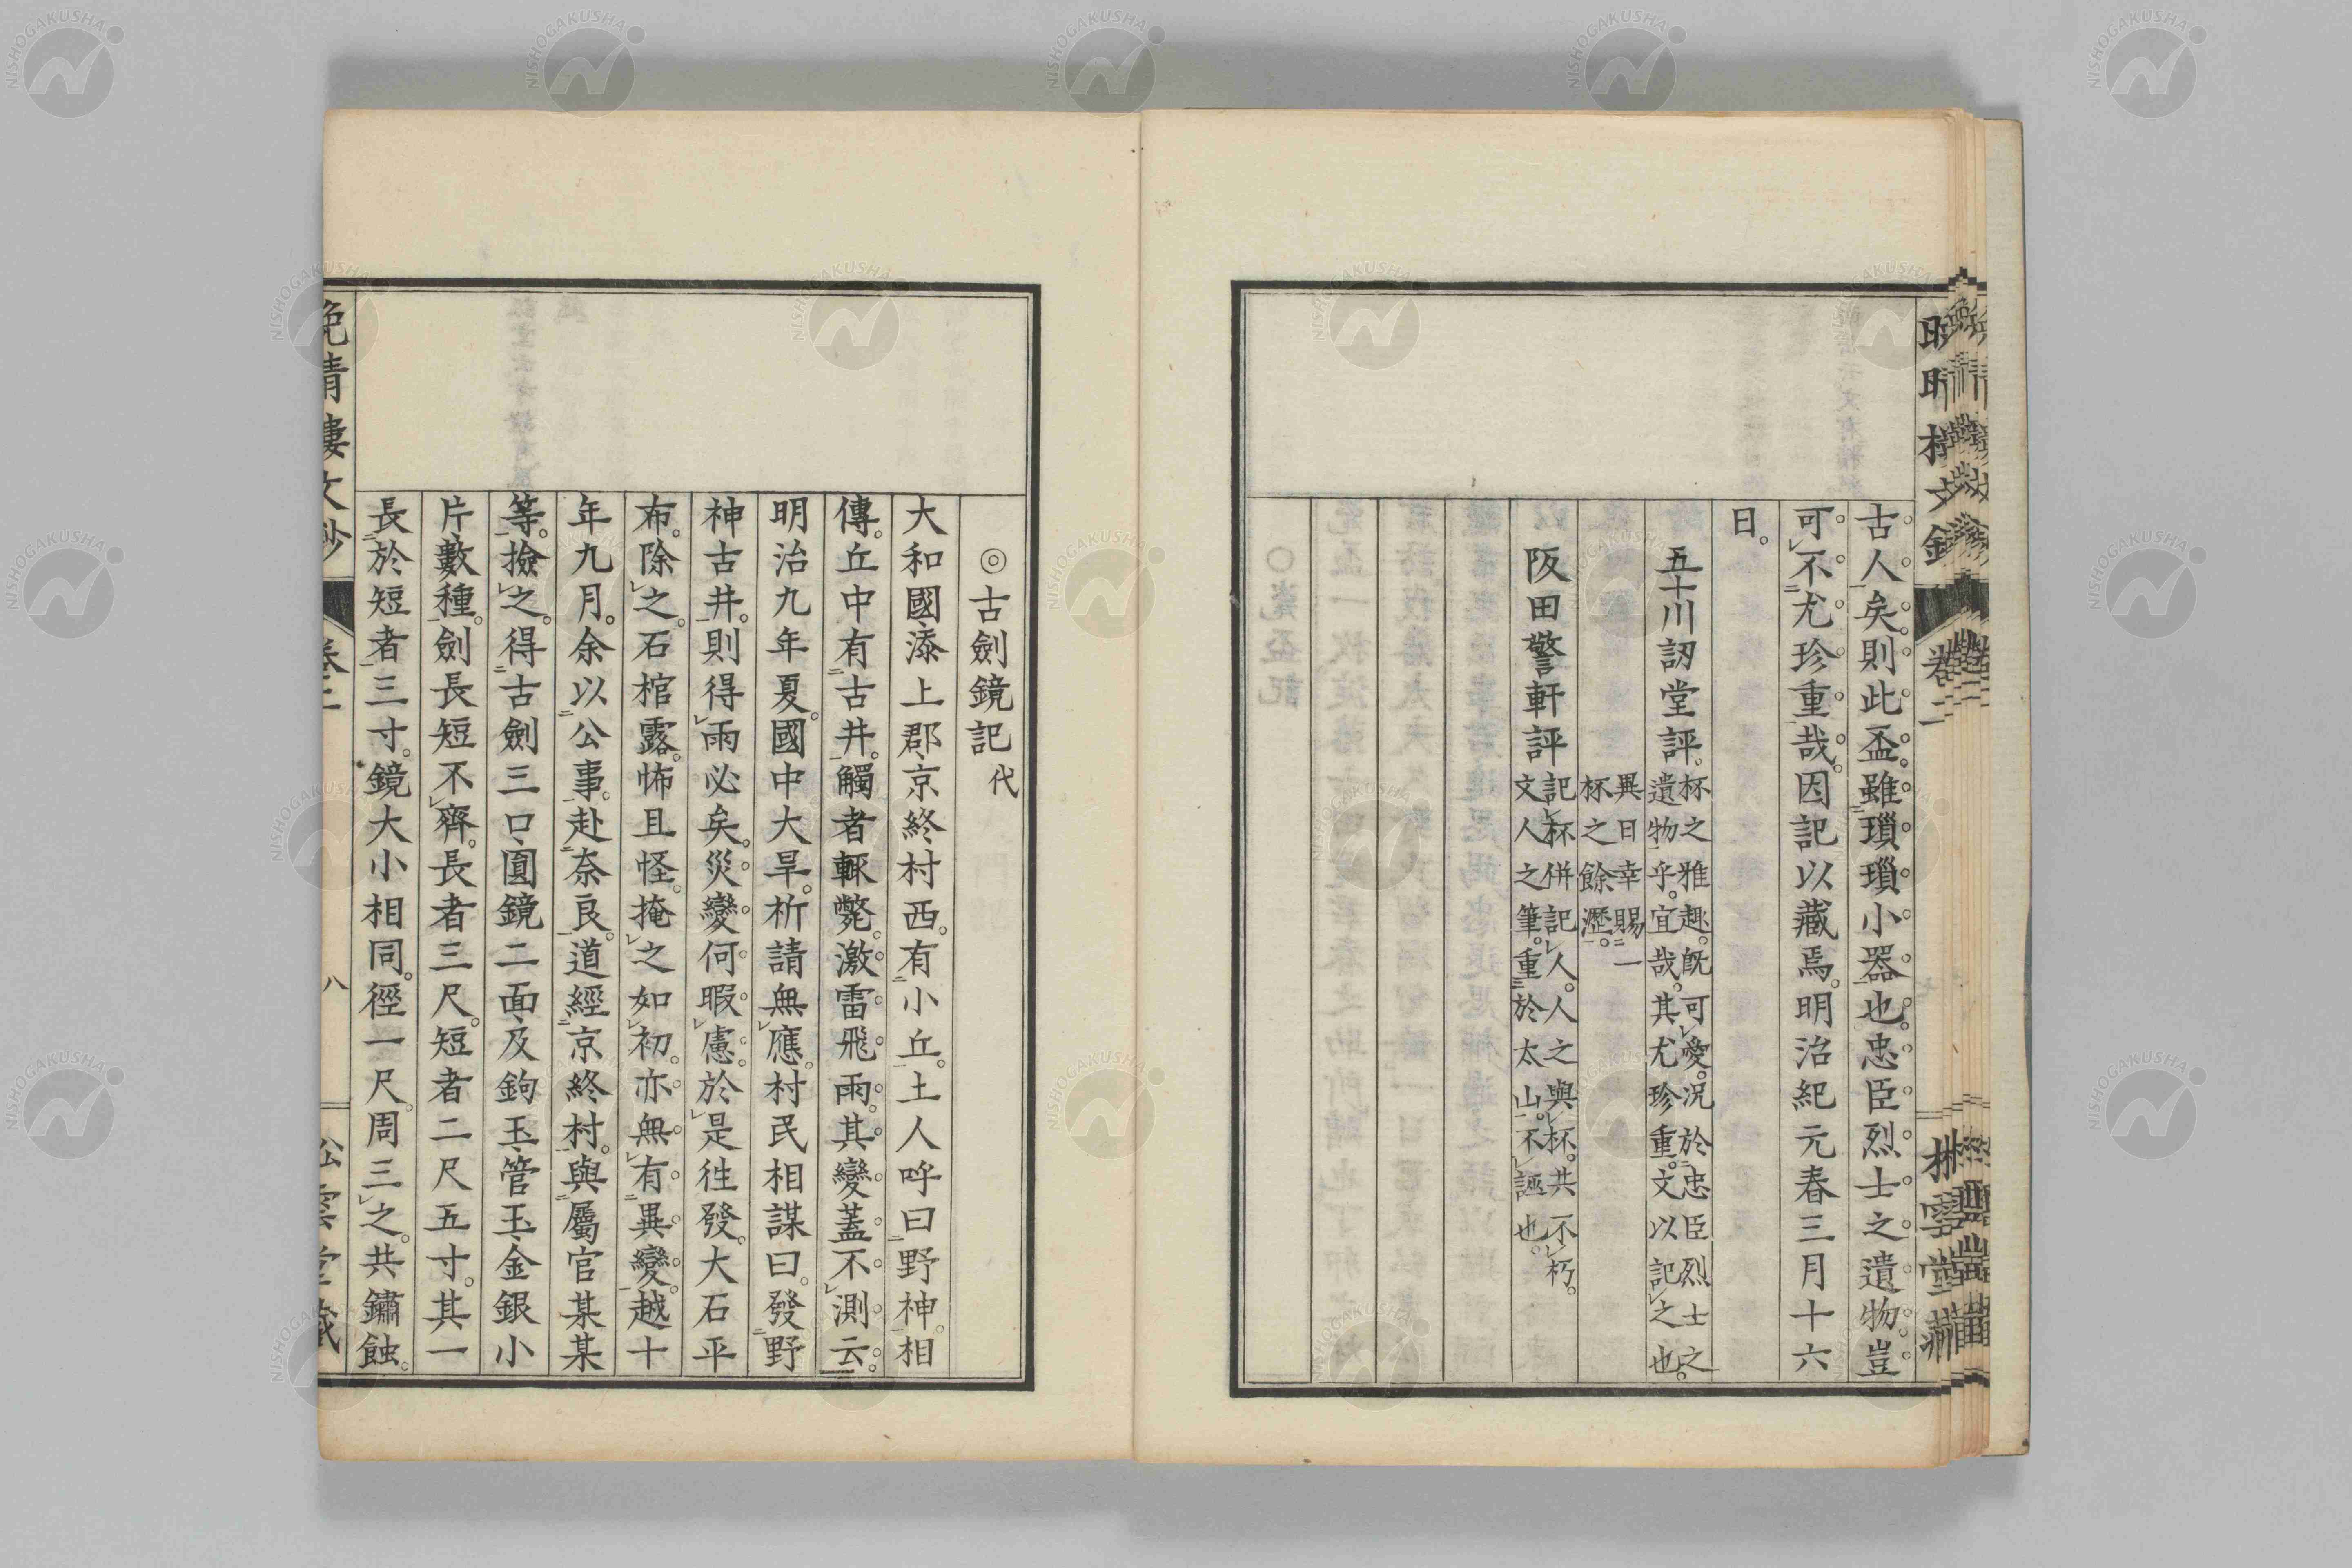 古人矣。則此盃。雖瑣瑣小器也。忠臣烈士之遺物。豈
可不尤珍重哉。因記以藏焉。明治紀元春三月十六
日。
五十川訒堂評。杯之雅趣。既可愛。況於忠臣烈士之
遺物乎。宜哉。其尤珍重。文以記之也。
異日幸賜一
杯之餘瀝。
阪田警軒評
記杯併記人。人之與杯。共不朽。
文人之筆。重於太山。不誣也。
◎古劍鏡記代
大和國添上郡京終村西。有小丘。土人呼曰野神。相
傳。丘中有古井。觸者輙斃。激雷飛雨。其變蓋不測云。
明治九年夏。國中大旱。祈請無應。村民相謀曰。發野
神古井。則得雨必矣。災變何暇慮。於是往發。大石平
布。除之。石棺露。怖且怪。掩之如初。亦無有異變。越十
年九月。余以公事。赴奈良。道經京終村。與屬官某某
等。撿之。得古劍三口、圓鏡二面、及鉤玉、管玉、金銀小
片、數種。劍長短不齊。長者三尺。短者二尺五寸。其一
長於短者三寸。鏡大小相同。徑一尺。周三之。共鏽蝕。
晚晴樓文鈔
卷二
八
松雲堂藏